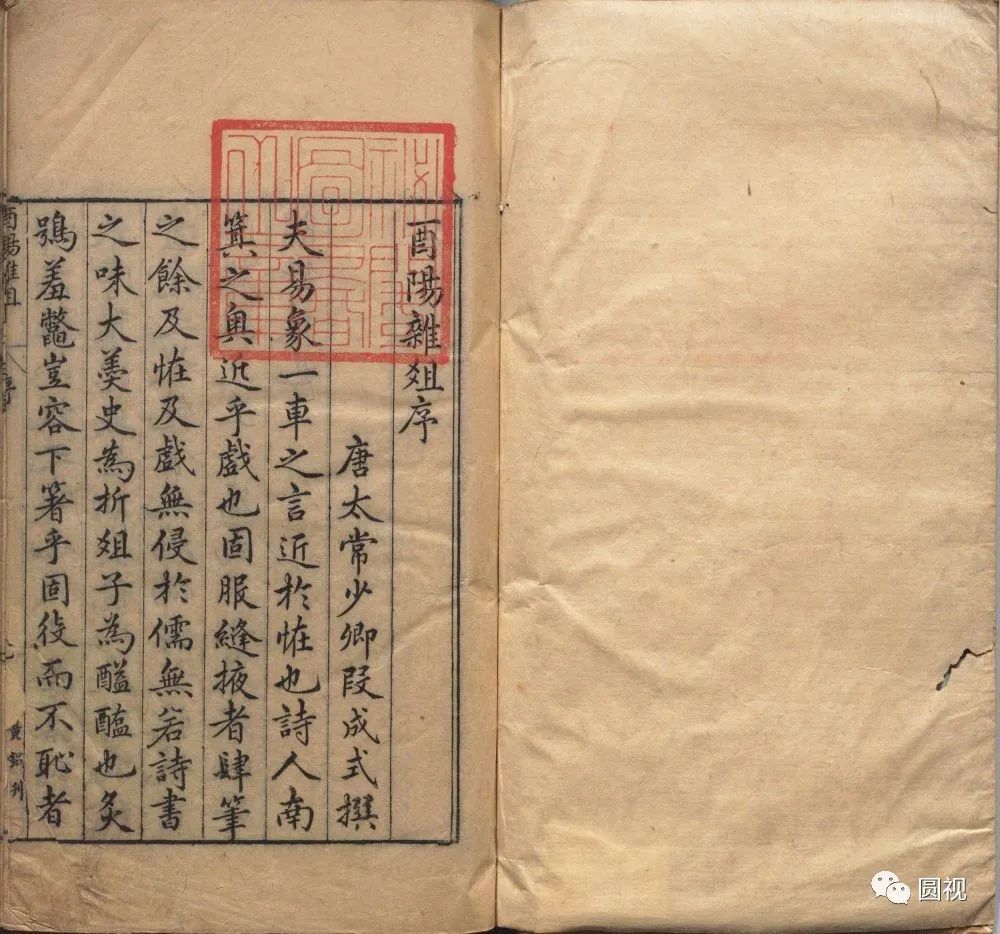 酉陽雜爼序
唐太常少卿段成式撰
夫易象一車之言近於恠也詩人南
箕之奥近乎戲也固服縫掖者肆筆
之餘及恠及戲無侵於儒無若詩書
之味大羮史為折爼子為醯醢也炙
鴞羞鼈豈容下箸乎固役而不恥者
酉陽雜爼
圆视